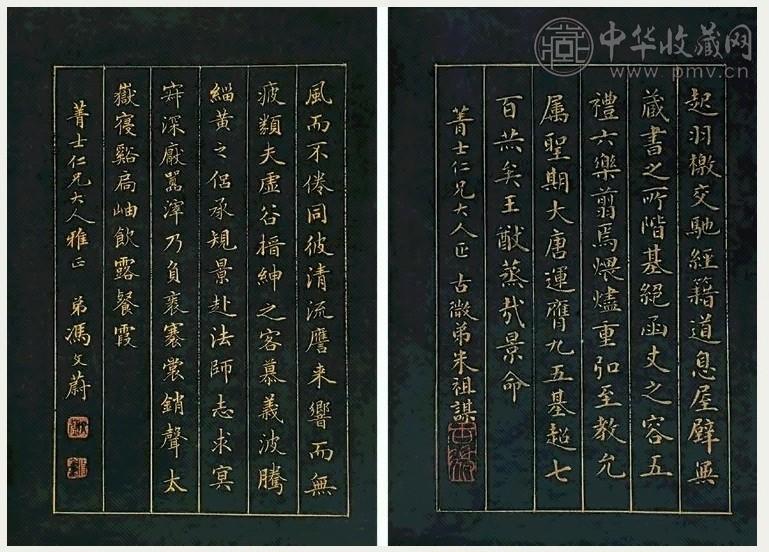 起羽檄交馳經籍道息屋壁無
藏書之所階基絕函丈之容五
禮六樂翦焉煨燼重弘至教允
属聖期大唐運膺九五基超七
百共矣王猷蒸哉景命
菁士仁兄大人正 古微弟朱祖謀
風而不倦同彼清流譍来響而無
疲類夫虛谷搢紳之客慕義波騰
緇黄之侣承規景赴法師志求冥
寂深厭囂滓乃負袠褰裳銷聲太
嶽寑谿扃岫飲露餐霞
菁士仁兄大人雅正 弟馮文蔚
中华收藏网
www.pmv.cn